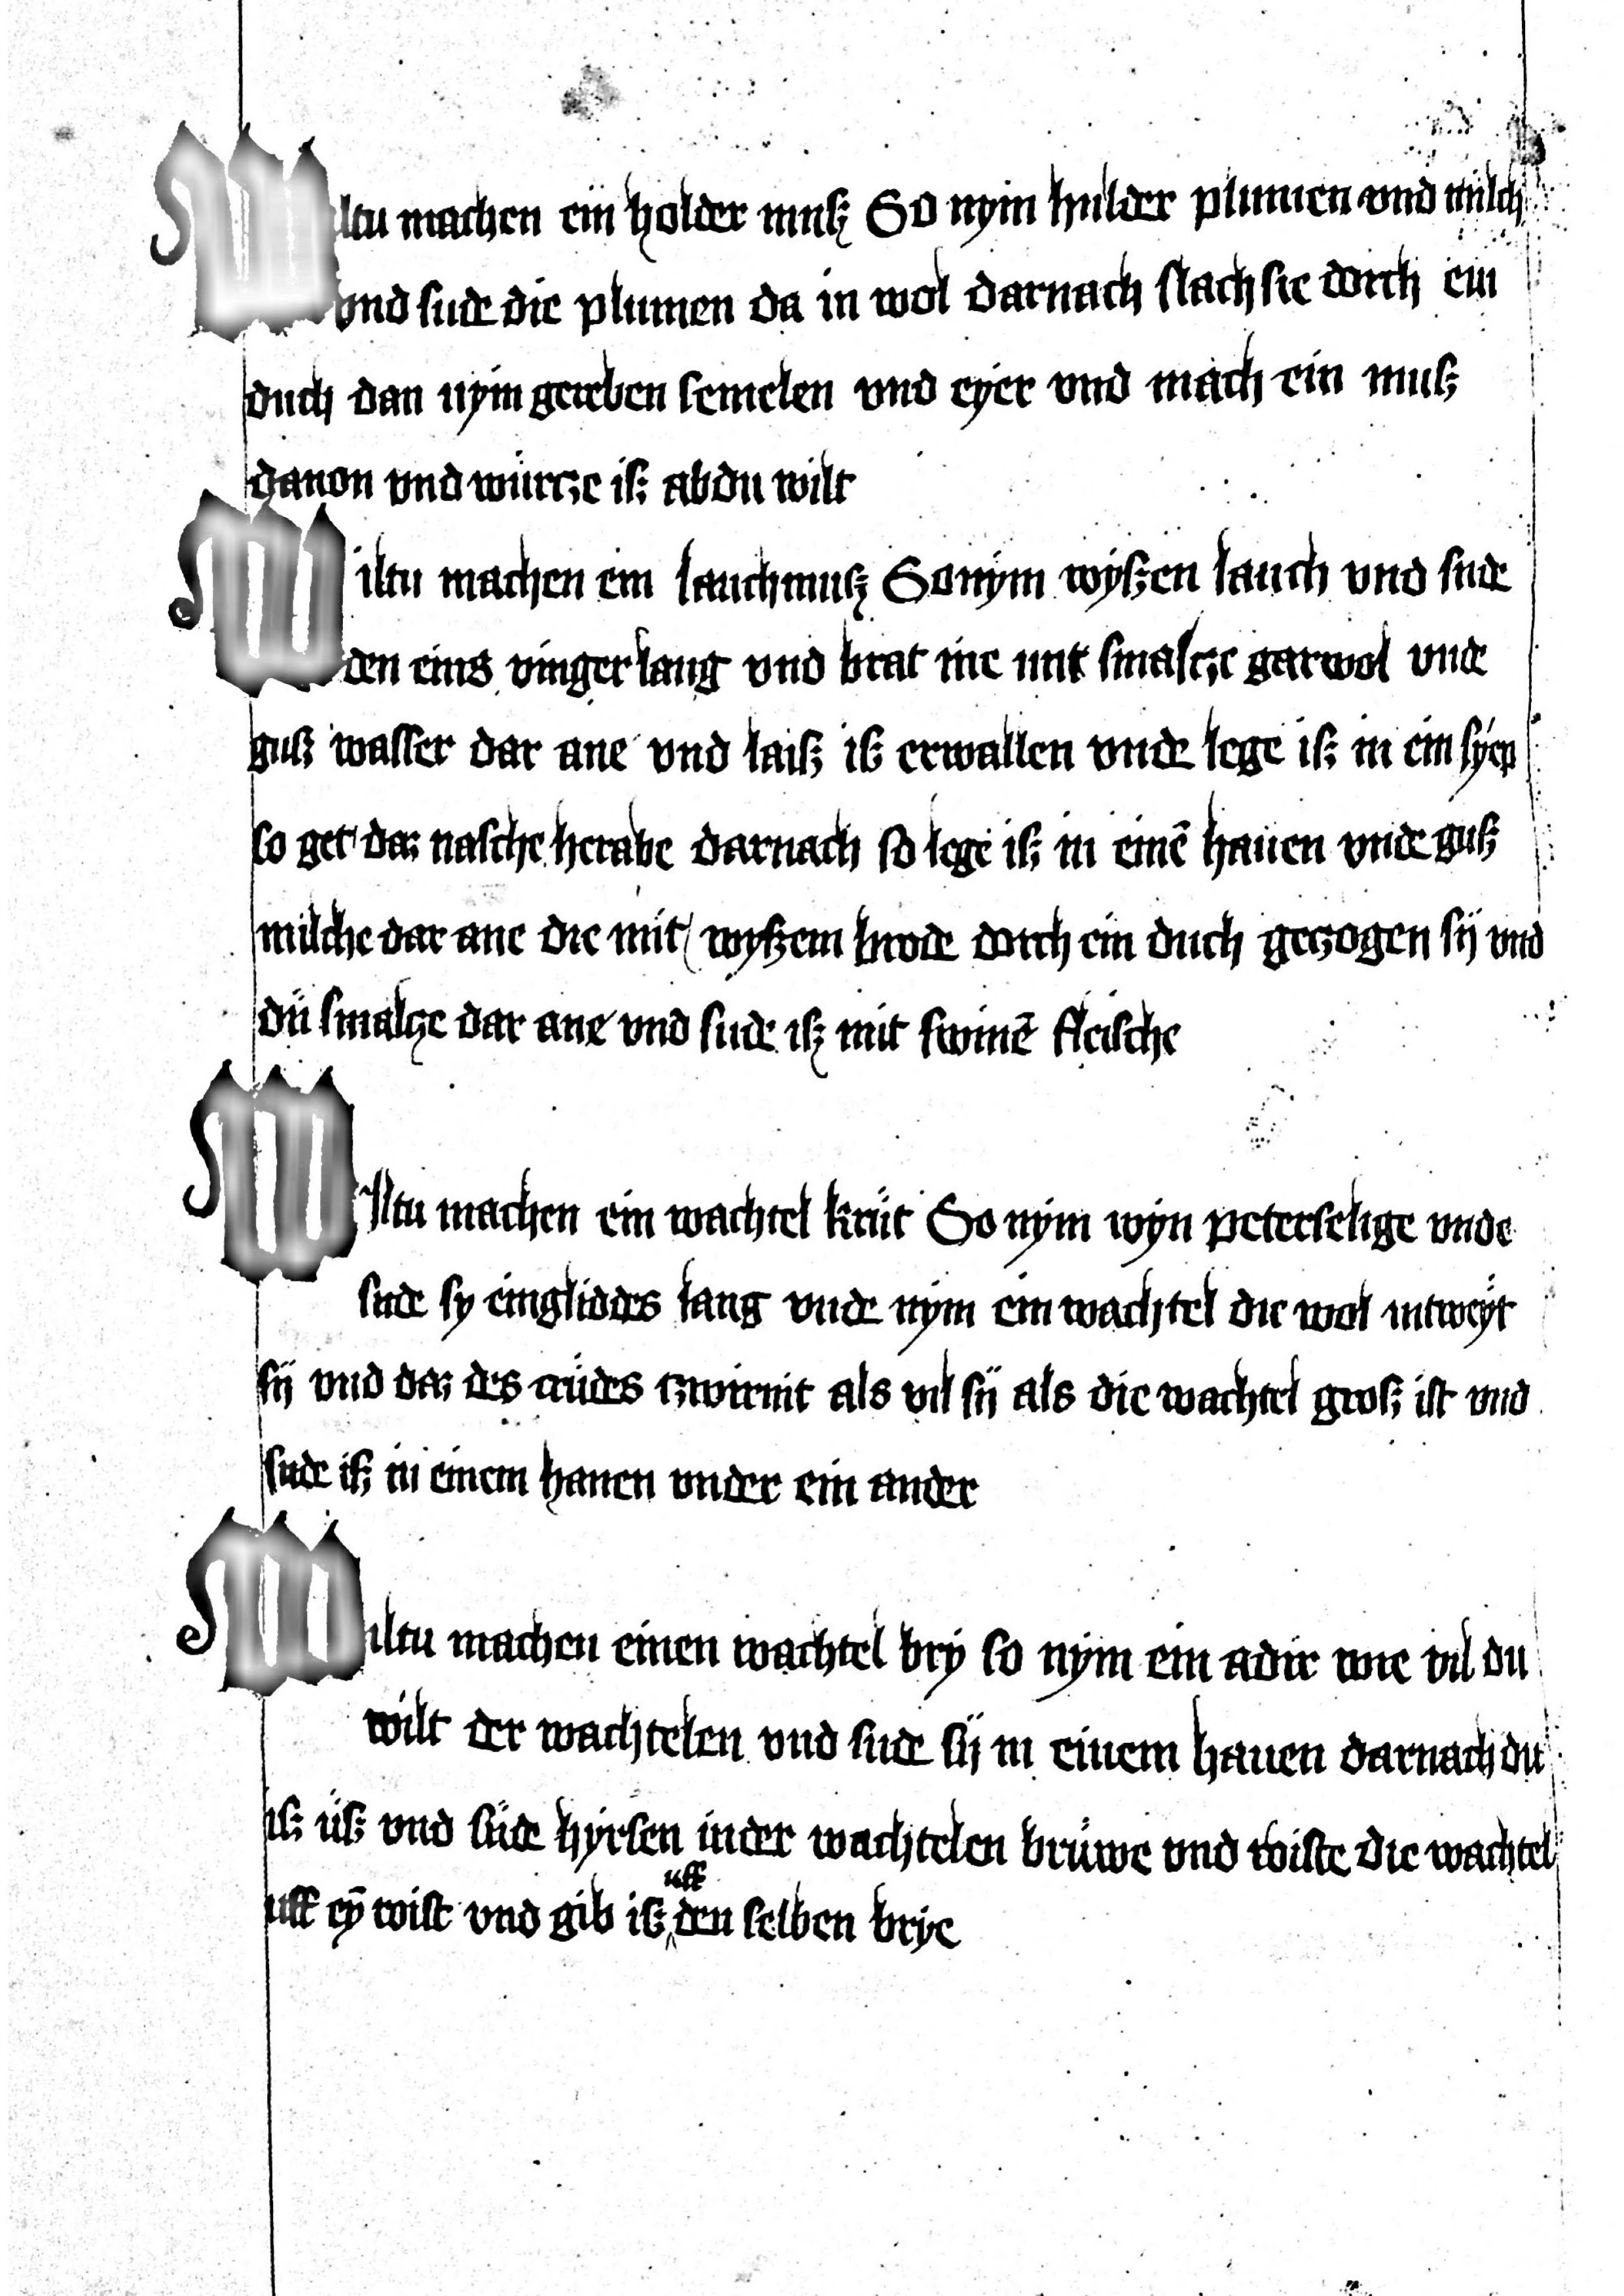 Wiltu machen ein holder muſz So nym hulder plumen vnd milch
vnd ſude die plumen da in wol darnach ſlach ſie dorch ein
duch dan nym gereben ſemelen vnd eyer vnd mach ein muſz
dauon vnd wurcze iſz ab du wilt
Wiltu machen ein lauchmuſz So nym wyſzen lauch vnd ſude
den eins vinger lang vnd brat me mit ſmalcze gar wol vnde
guſz waſſer dar ane vnd laiſz iſz erwallen vnde lege iſz in ein ſyep
ſo get daz naſche herabe darnach ſo lege iſz in einē hauen vnde guſz
milche dar ane die mit wyſzem brode dorch ein duch geczogen ſij vnd
dü ſmalcze dar ane vnd ſude iſz mit ſwinē fleiſche
Wiltu machen ein wachtel krüt So nym wyn peterſelige vnde
ſude ſy eingliddes lang vnde nym ein wachtel die wol intweyt
ſij vnd daz des crüdes tzwirnit als vil ſij als die wachtel groſz iſt vnd
ſude iſz in einem hauen vnder ein ander
Wiltu machen einen wachtel bry ſo nym ein adir wie vil du
wilt der wachtelen vnd ſude ſij in einem hauen darnach du
iſz üſz vnd ſüde hyrſen in der wachtelen brüwe vnd wiſte die wachtel
uff eȳ wiſt vnd gib iſz uff den ſelben brye